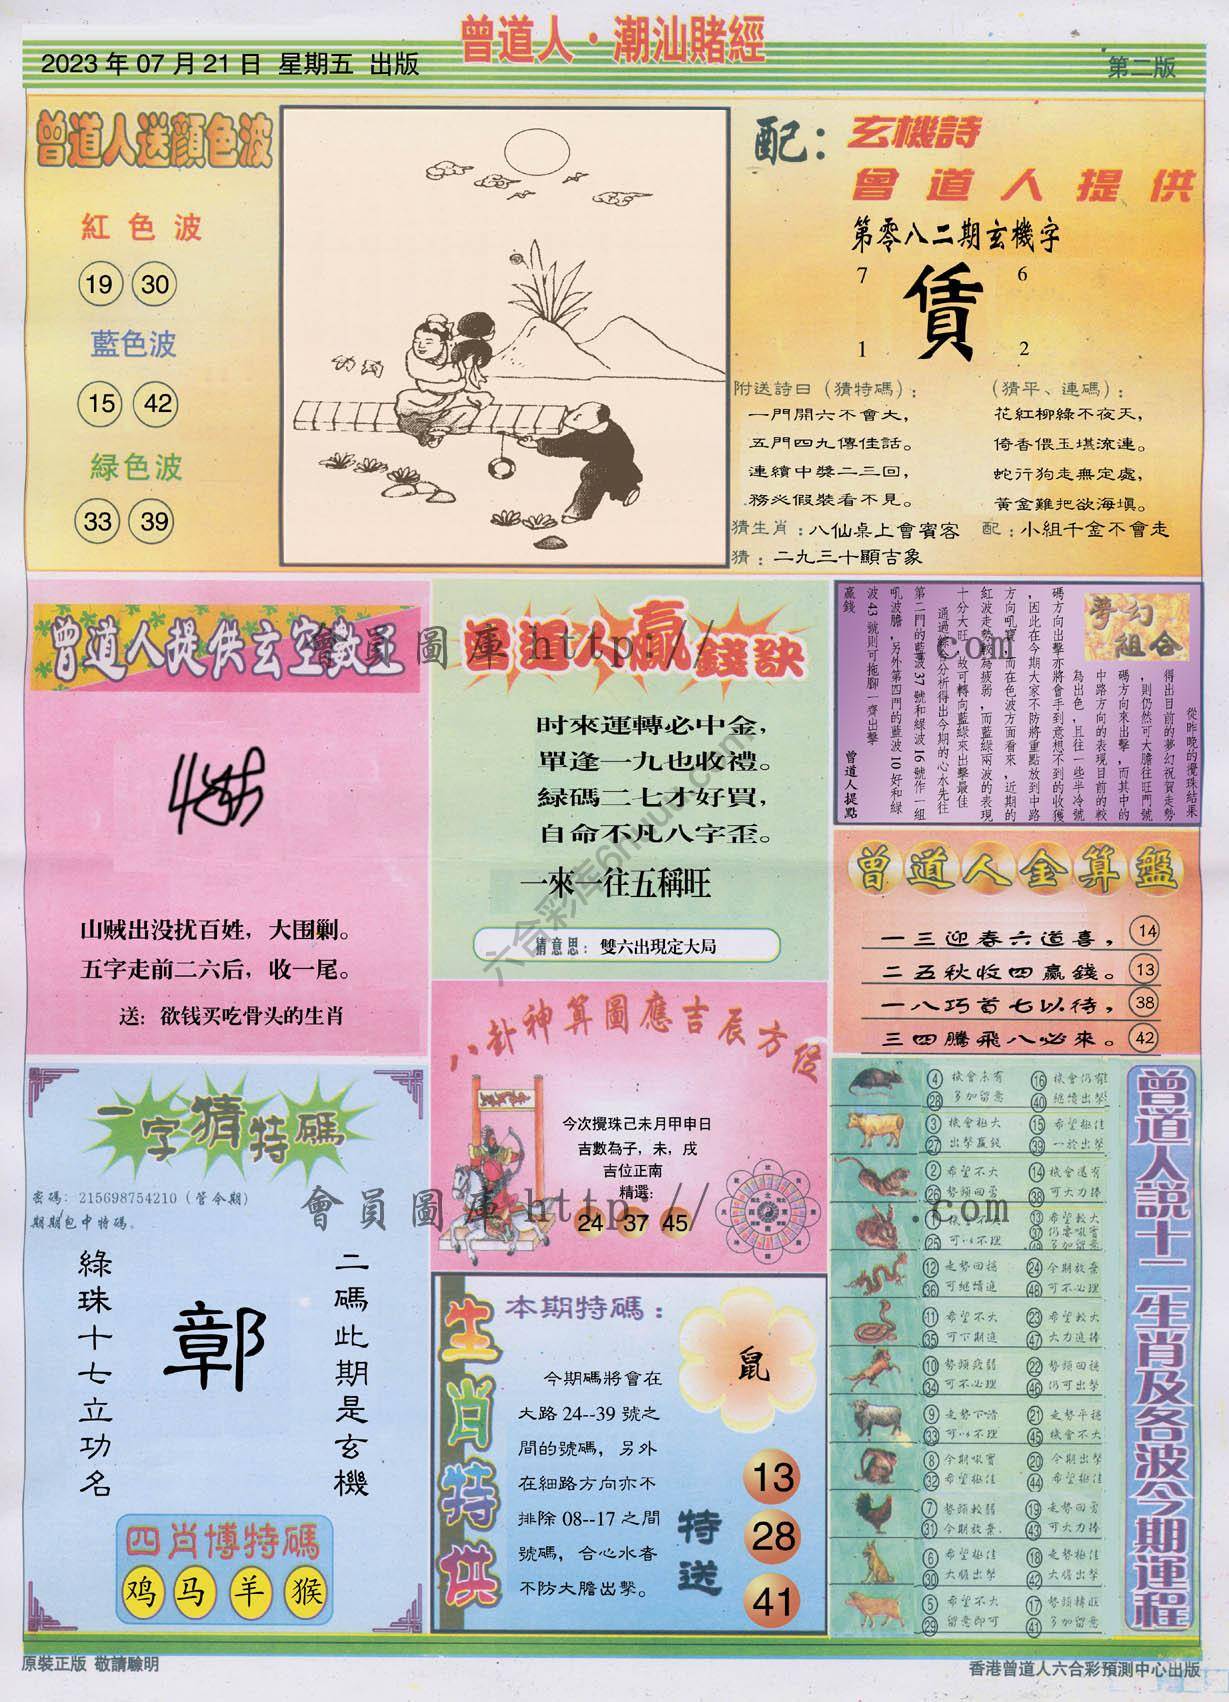 曾道人·潮汕賭經
2023 年 07 月 21 日 星期五 出版
第二版
曾道人送顏色波
紅色波
19 30
藍色波
15 42
綠色波
33 39
配：
玄機詩
曾道人提供
第零八二期玄機字
7 6
賃
1 2
附送詩曰（猜特碼）：
一門開六不會大，
五門四九傳佳話。
連續中獎二三回，
務必假裝看不見。
（猜平、連碼）：
花紅柳綠不夜天，
倚香偎玉堪流連。
蛇行狗走無定處，
黃金難把欲海填。
猜生肖：八仙桌上會賓客
配：小組千金不會走
猜：二九三十顯吉象
曾道人提供玄空數王
山贼出没扰百姓，大围剿。
五字走前二六后，收一尾。
送：欲钱买吃骨头的生肖
曾道人贏錢訣
时來運轉必中金，
單逢一九也收禮。
緑碼二七才好買，
自命不凡八字歪。
一來一往五稱旺
猜意思：雙六出現定大局
夢幻組合
從昨晚的攪珠結果
得出目前的夢幻祝賀走勢
，則仍然可大膽往旺門號
碼方向來出擊，而其中的
中路方向的表現目前的較
為出色，且往一些半冷號
碼方向出擊亦將會手到意想不到的收獲
，因此在今期大家不防將重點放到中路
方向吼實，而在色波方面看來，近期的
紅波走勢較為疲弱，而藍綠兩波的表現
十分大旺，故可轉向藍綠來出擊最佳
通過綜合分析得出今期的心水先往
第二門的藍波 37 號和綠波 16 號作一組
吼波膽，另外第四門的藍波 10 好和綠
波 43 號則可拖腳一齊出擊
贏錢
曾道人提點
曾道人金算盤
一三迎春六道喜， 14
二五秋收四贏錢。 13
一八巧首七以待， 38
三四騰飛八必來。 42
八卦神算圖應吉辰方位
今次攪珠己未月甲申日
吉數為子，未，戌
吉位正南
精選：
24 37 45
一字猜特碼
密碼：215698754210（管今期）
期期包中特碼。
二碼此期是玄機
鄣
綠珠十七立功名
四肖博特碼
鸡 马 羊 猴
生肖特供
本期特碼：
鼠
今期碼將會在
大路 24--39 號之
間的號碼，另外
在細路方向亦不
排除 08--17 之間
號碼，合心水者
不防大膽出擊。
特送
13
28
41
曾道人說十二生肖及各波今期運程
4 機會未有 16 機會仍有
28 多加留意 40 繼續出擊
3 機會極大 15 希望極佳
27 出擊贏錢 39 一於出擊
2 希望不大 14 機會還有
26 勢頭回勇 38 可大力捧
1 機會不大 13 希望較大
25 可以不理 37 仍要吼實
49 多加留意
12 走勢回穩 24 今期放棄
36 可繼續進 48 可不必理
11 希望不大 23 希望較大
35 可下期進 47 大力進捧
10 勢頭疲弱 22 勢頭回穩
34 可不必理 46 仍可出擊
9 走勢下滑 21 走勢平穩
33 可以不理 45 機會不大
8 今期吼實 20 今期出擊
32 希望極佳 44 希望極佳
7 勢頭較弱 19 走勢回勇
31 今期放棄 43 可大力捧
6 希望極佳 18 走勢極佳
30 大膽出擊 42 大膽出擊
5 希望不大 17 勢頭轉旺
29 留意即可 41 多加留意
會員圖庫 http://
.com
會員圖庫 http://
.com
六合彩库6huu.com
原裝正版 敬請驗明
香港曾道人六合彩預測中心出版